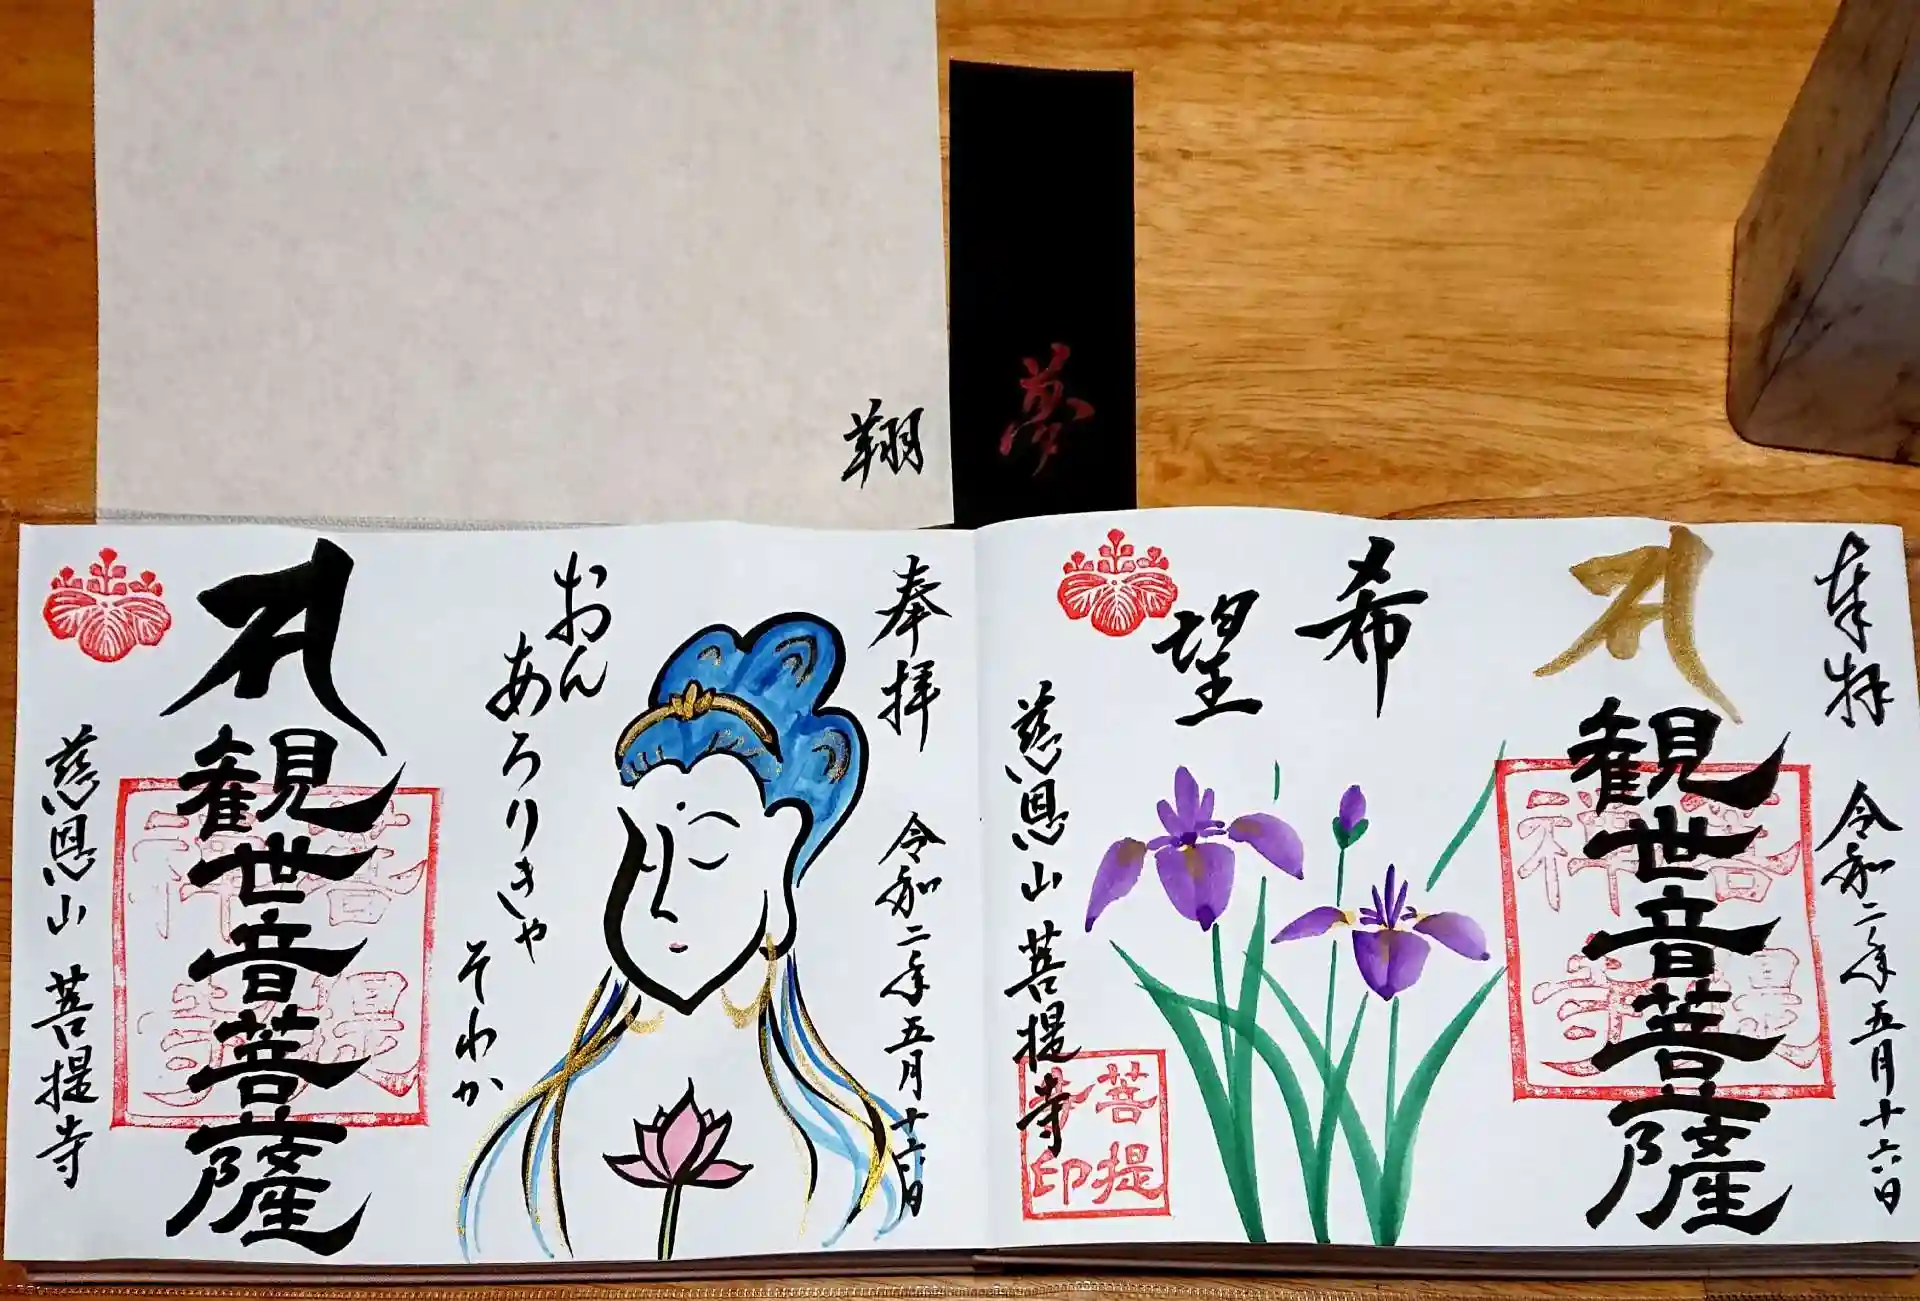 翔
夢
奉拝
令和二年五月十六日
観世音菩薩
希
望
慈恩山 菩提寺
菩提
寺印
奉拝
令和二年五月十六日
おん
あろりきゃ
そわか
観世音菩薩
慈恩山 菩提寺